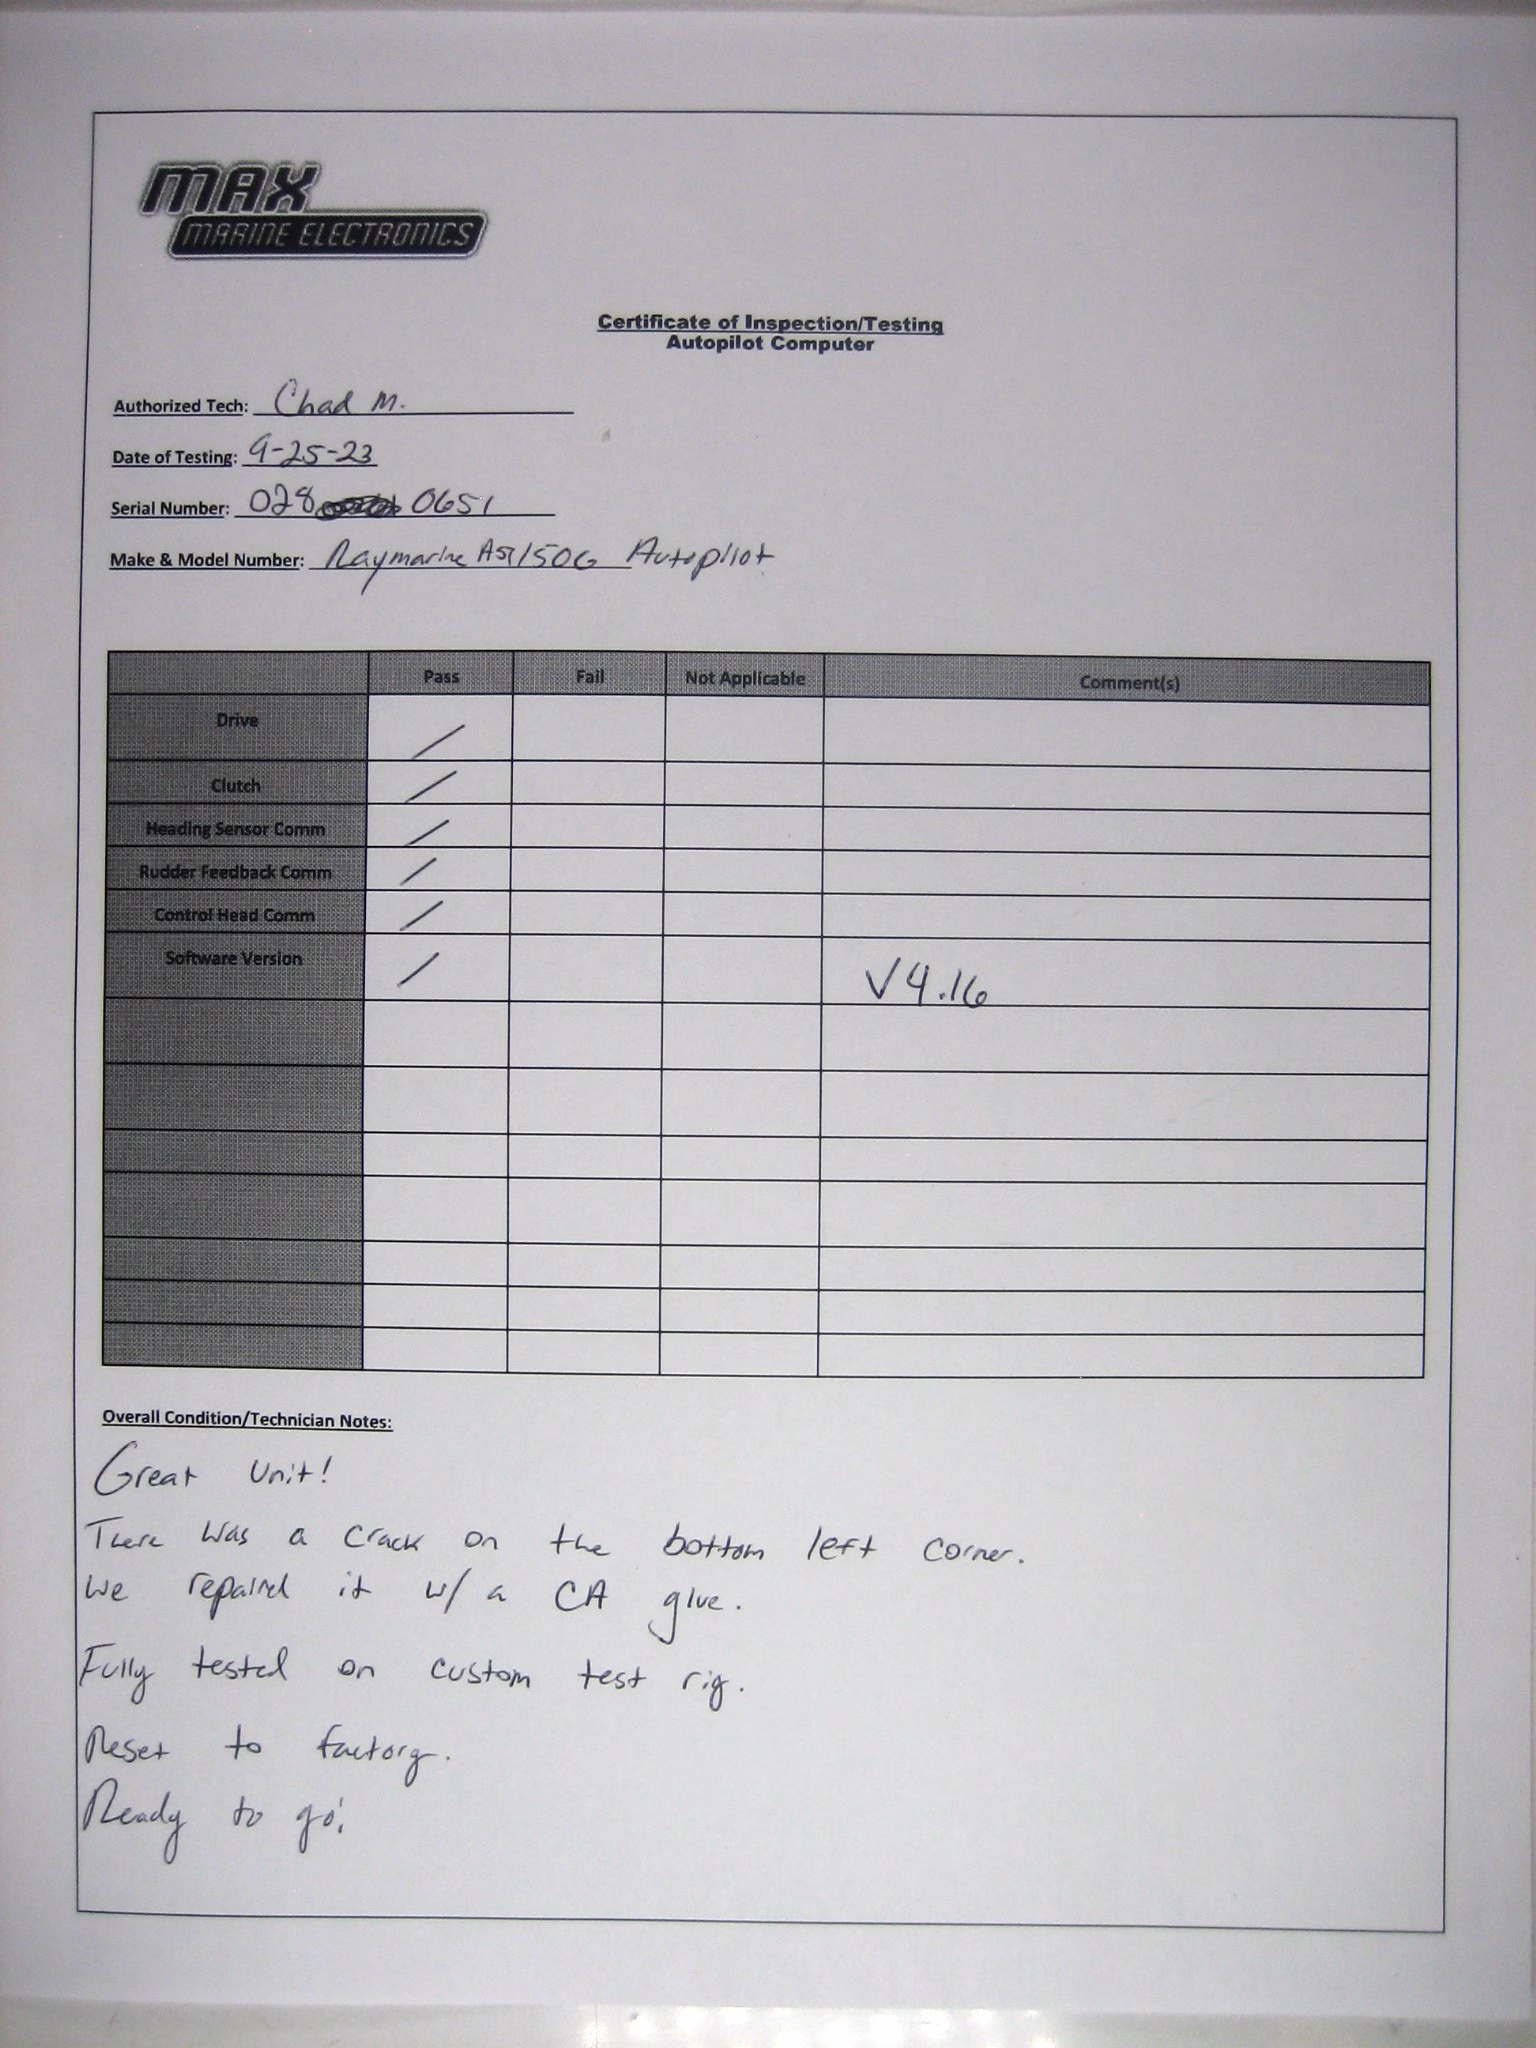 MAX
MARINE ELECTRONICS
Certificate of Inspection/Testing
Autopilot Computer
Authorized Tech: Chad M.
Date of Testing: 9-25-23
Serial Number: 028 0651
Make & Model Number: Raymarine Autopilot
Pass Fail Not Applicable Comment(s)
Drive /
Clutch /
Heading Sensor Comm /
Rudder Feedback Comm /
Control Head Comm /
Software Version / V4.16
Overall Condition/Technician Notes:
Great Unit!
There was a crack on the bottom left corner.
We repaired it w/ a CA glue.
Fully tested on custom test rig.
Reset to factory.
Ready to go!